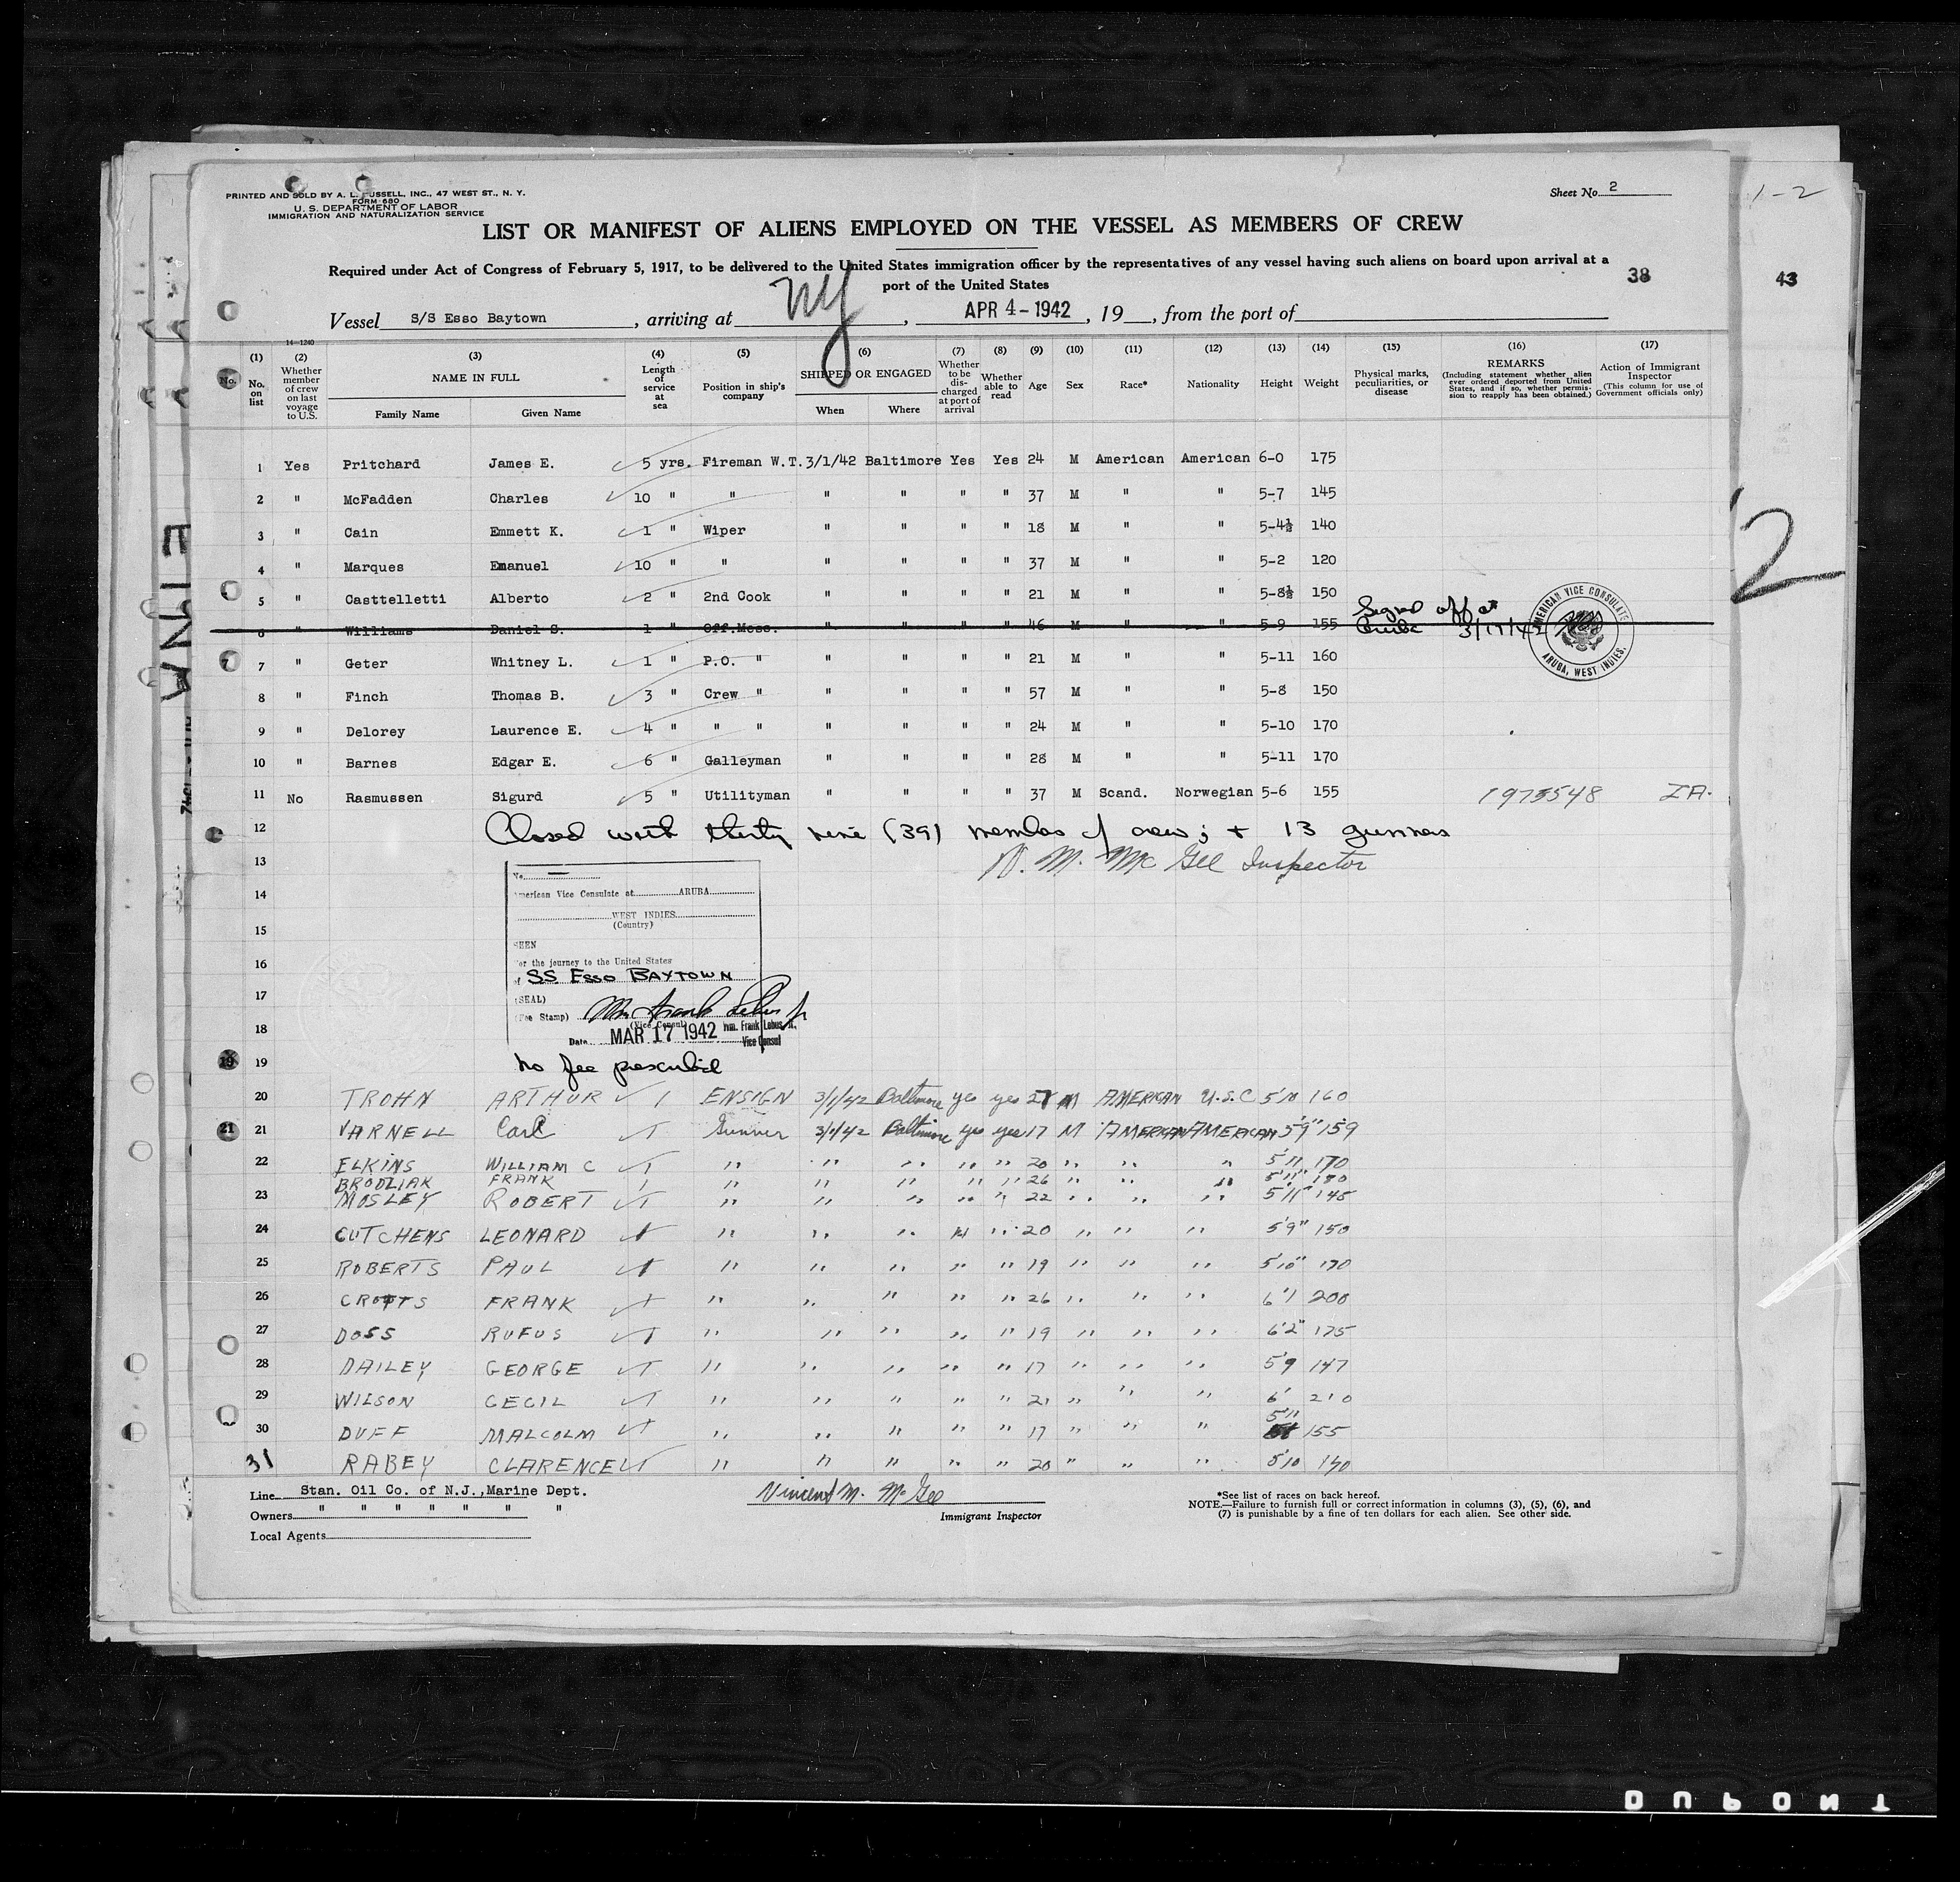 PRINTED AND SOLD BY A. L. RUSSELL, INC., 47 WEST ST., N. Y.
FORM 680
U. S. DEPARTMENT OF LABOR
IMMIGRATION AND NATURALIZATION SERVICE
Sheet No. 2
1-2
LIST OR MANIFEST OF ALIENS EMPLOYED ON THE VESSEL AS MEMBERS OF CREW
Required under Act of Congress of February 5, 1917, to be delivered to the United States immigration officer by the representatives of any vessel having such aliens on board upon arrival at a
port of the United States
38
43
Vessel S/S Esso Baytown, arriving at NY, APR 4-1942, 19__, from the port of
14-1240
(1) No. on list
(2) Whether member of crew on last voyage to U.S.
(3) NAME IN FULL Family Name Given Name
(4) Length of service at sea
(5) Position in ship's company
(6) SHIPPED OR ENGAGED When Where
(7) Whether to be discharged at port of arrival
(8) Whether able to read
(9) Age
(10) Sex
(11) Race*
(12) Nationality
(13) Height
(14) Weight
(15) Physical marks, peculiarities, or disease
(16) REMARKS (Including statement whether alien ever ordered deported from United States, and if so, whether permission to reapply has been obtained.)
(17) Action of Immigrant Inspector (This column for use of Government officials only)
1 Yes Pritchard James E. 5 yrs. Fireman W.T. 3/1/42 Baltimore Yes Yes 24 M American American 6-0 175
2 " McFadden Charles 10 " " " " " " 37 M " " 5-7 145
3 " Cain Emmett K. 1 " Wiper " " " " 18 M " " 5-4½ 140
4 " Marques Emanuel 10 " " " " " " 37 M " " 5-2 120
5 " Casttelletti Alberto 2 " 2nd Cook " " " " 21 M " " 5-8½ 150
6 " Williams Daniel S. 1 " Off.Mess. " " " " 46 M " " 5-9 155 Signed off at Aruba 3/17/42
AMERICAN VICE CONSULATE
ARUBA, WEST INDIES.
7 " Geter Whitney L. 1 " P.O. " " " " " 21 M " " 5-11 160
8 " Finch Thomas B. 3 " Crew " " " " " 57 M " " 5-8 150
9 " Delorey Laurence E. 4 " " " " " " " 24 M " " 5-10 170
10 " Barnes Edgar E. 6 " Galleyman " " " " 28 M " " 5-11 170
11 No Rasmussen Sigurd 5 " Utilityman " " " " 37 M Scand. Norwegian 5-6 155 1975548 IA.
12 Closed with thirty nine (39) members of crew; + 13 gunners
13 V. M. McGee Inspector
No. —
14 American Vice Consulate at ARUBA
15 WEST INDIES
(Country)
SEEN
16 For the journey to the United States
of SS ESSO BAYTOWN
17 (SEAL)
(Fee Stamp) Wm Frank Lebus Jr
18 (Vice Consul) Wm. Frank Lebus, Jr.,
Date MAR 17 1942 Vice Consul
19 No fee prescribed
20 TROHN ARTHUR 1 ENSIGN 3/1/42 Baltimore yes yes 27 M AMERICAN U.S.C 5'10 160
21 VARNELL Carl 1 Gunner 3/1/42 Baltimore yes yes 17 M AMERICAN AMERICAN 5'9" 159
22 ELKINS WILLIAM C 1 " " " " " 20 " " " 5'11 170
BRODLIAK FRANK 1 " " " " " 26 " " " 5'11" 180
23 MOSLEY ROBERT 1 " " " " " 22 " " " 5'11" 145
24 CUTCHENS LEONARD 1 " " " " " 20 " " " 5'9" 150
25 ROBERTS PAUL 1 " " " " " 19 " " " 5'10" 170
26 CROFTS FRANK 1 " " " " " 26 " " " 6'1 200
27 DOSS RUFUS 1 " " " " " 19 " " " 6'2" 175
28 DAILEY GEORGE 1 " " " " " 17 " " " 5'9 147
29 WILSON CECIL 1 " " " " " 21 " " " 6' 210
30 DUFF MALCOLM 1 " " " " " 17 " " " 5'11 155
31 RABEY CLARENCE 1 " " " " " 20 " " " 5'10 140
Line Stan. Oil Co. of N.J.,Marine Dept.
Owners " " " " " " "
Local Agents
Vincent M. McGee
Immigrant Inspector
*See list of races on back hereof.
NOTE.—Failure to furnish full or correct information in columns (3), (5), (6), and
(7) is punishable by a fine of ten dollars for each alien. See other side.
2
DUPONT